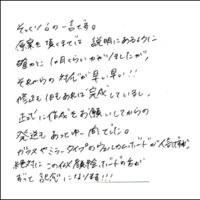 そっくり！の一言です。
原案を頂くまでは 説明にあるように
確かに1ヶ月くらいかかりましたが、
それからの対応が早い早い！！
修正も1日もあれば完成しているし、
正式に作成をお願いしてからの
発送もあっという間でした。
ガラスやミラータイプのウェルカムボードが人気ですが、
絶対にこの似顔絵ボードの方が
ずっと記念になります！！！